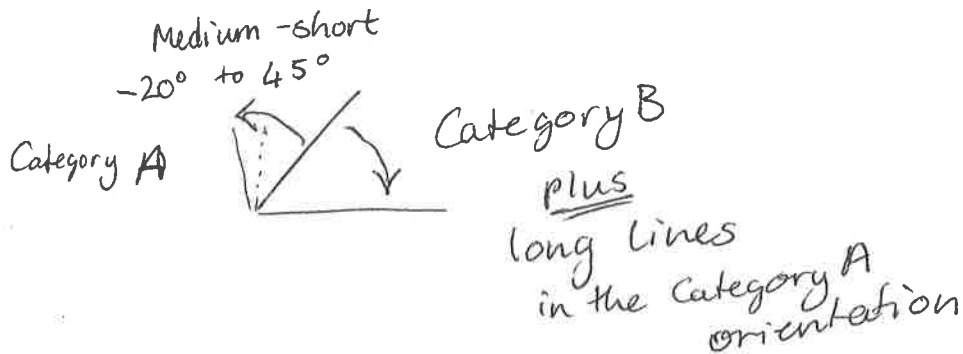 Medium-short
-20° to 45°
Category A
Category B
plus
long lines
in the Category A
orientation